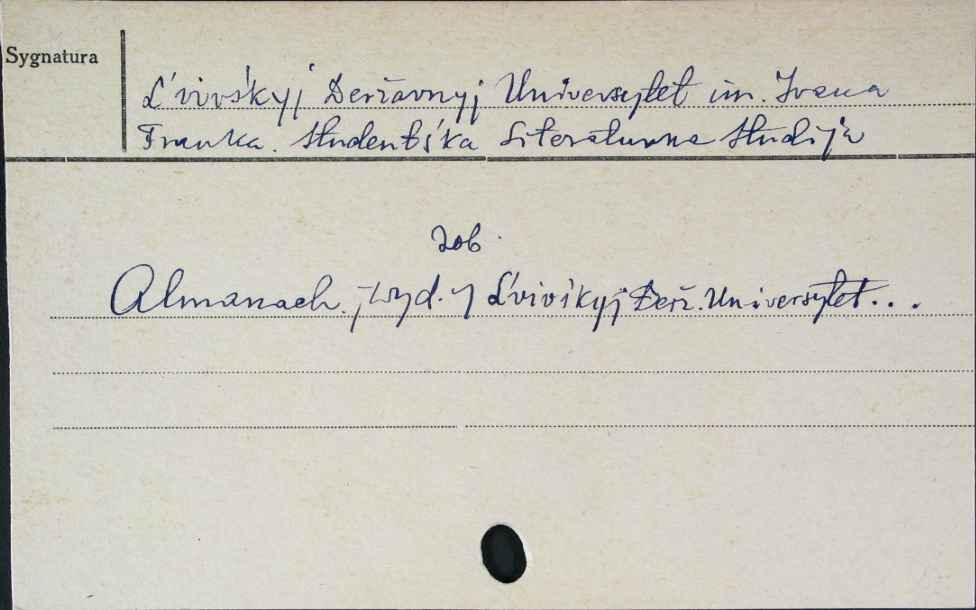 Sygnatura
L'vivśkyj Deržavnyj Universytet im. Ivana
Franka. Studentśka Literaturna Studija
zob.
Almanach. [wyd.] L'vivśkyj Derž. Universytet...